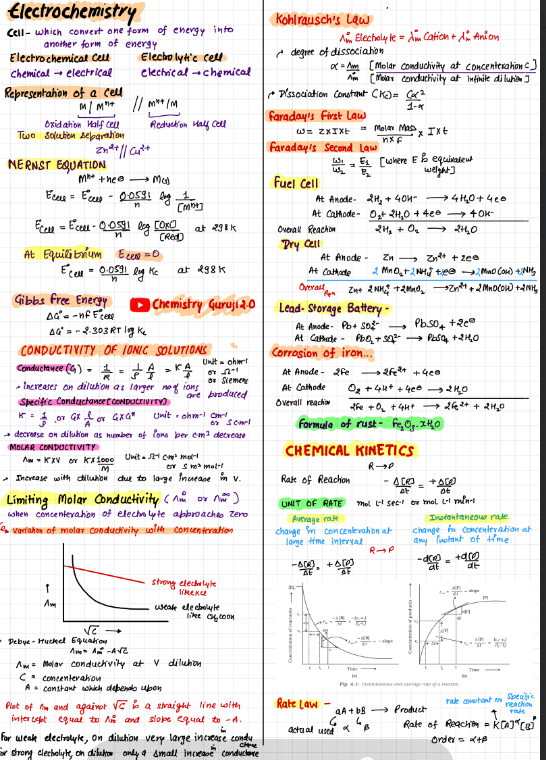 Electrochemistry
Cell - which convert one form of energy into
another form of energy
Electrochemical Cell Electrolytic cell
chemical → electrical electrical → chemical
Representation of a cell
M / Mn+ // Mn+/M
Oxidation Half Cell Reduction Half Cell
Two solution separation
Zn2+ // Cu2+
NERNST EQUATION
Mn+ + ne⊖ → M(s)
Ecell = E°cell - 0.0591/n log 1/[Mn+]
Ecell = E°cell - 0.0591/n log [OxO]/[Red] at 298K
At Equilibrium Ecell = 0
E°cell = 0.0591/n log Kc at 298K
Gibbs free Energy
Chemistry Guruji 2.0
ΔG° = -nF E°cell
ΔG° = -2.303RT log Kc
CONDUCTIVITY OF IONIC SOLUTIONS
Conductance (G) = 1/R = 1/ρ A/l = K A/l Unit = ohm-1
or Ω-1
or Siemens
• increases on dilution as larger no of ions are produced
Specific Conductance [CONDUCTIVITY]
K = 1/ρ or G x l/A or G x G* Unit = ohm-1 cm-1
or S cm-1
→ decrease on dilution as number of ions per cm3 decrease
MOLAR CONDUCTIVITY
Λm = K x V or K x 1000/M Unit = Ω-1 cm2 mol-1
or S m2 mol-1
• Increase with dilution due to large increase in V.
Limiting Molar Conductivity (Λ°m or Λ∞m)
when concentration of electrolyte approaches zero
variation of molar conductivity with concentration
Λm
strong electrolyte
like KCl
weak electrolyte
like CH3COOH
√C →
Debye-Huckel Equation
Λm = Λ°m - A√C
Λm = Molar conductivity at V dilution
C = concentration
A = constant which depends upon
Plot of Λm and against √C is a straight line with
intercept equal to Λ°m and slope equal to -A.
For weak electrolyte, on dilution very large increase in condu
For strong electrolyte, on dilution only a small increase in conductance
Kohlrausch's Law
Λ°m Electrolyte = λ°m Cation + λ°m Anion
degree of dissociation
α = Λm/Λ°m [Molar conductivity at concentration C]
[Molar conductivity at infinite dilution]
Dissociation Constant (Kc) = Cα2/1-α
Faraday's First Law
w = Z x I x t = Molar Mass/n x F x I x t
Faraday's Second Law
w1/w2 = E1/E2 [where E is equivalent
weight]
Fuel Cell
At Anode - 2H2 + 4OH- → 4H2O + 4e⊖
At Cathode - O2 + 2H2O + 4e⊖ → 4OH-
Overall Reaction 2H2 + O2 → 2H2O
Dry Cell
At Anode - Zn → Zn2+ + 2e⊖
At Cathode 2MnO2 + 2NH4+ + 2e⊖ → 2MnO(OH) + 2NH3
Overall Rxn Zn + 2NH4+ + 2MnO2 → Zn2+ + 2MnO(OH) + 2NH3
Lead-Storage Battery -
At Anode - Pb + SO42- → PbSO4 + 2e⊖
At Cathode - PbO2 + SO42- → PbSO4 + 2H2O
Corrosion of iron...
At Anode - 2Fe → 2Fe2+ + 4e⊖
At Cathode O2 + 4H+ + 4e⊖ → 2H2O
Overall reaction 2Fe + O2 + 4H+ → 2Fe2+ + 2H2O
Formula of rust - Fe2O3.xH2O
CHEMICAL KINETICS
R → P
Rate of Reaction - Δ[R]/Δt = +Δ[P]/Δt
UNIT OF RATE mol L-1 sec-1 or mol L-1 min-1
Average rate Instantaneous rate
change in concentration at change in concentration at
large time interval any instant of time
R → P
-Δ[R]/Δt = +Δ[P]/Δt -d[R]/dt = +d[P]/dt
Concentration of reactants
Time
(a)
Concentration of products
Time
(b)
Fig. 4.1: Instantaneous and average rate of a reaction
Rate Law - aA + bB → Product
actual used α β
rate constant or Specific
reaction
rate
Rate of Reaction = K[A]α [B]β
Order = α+β